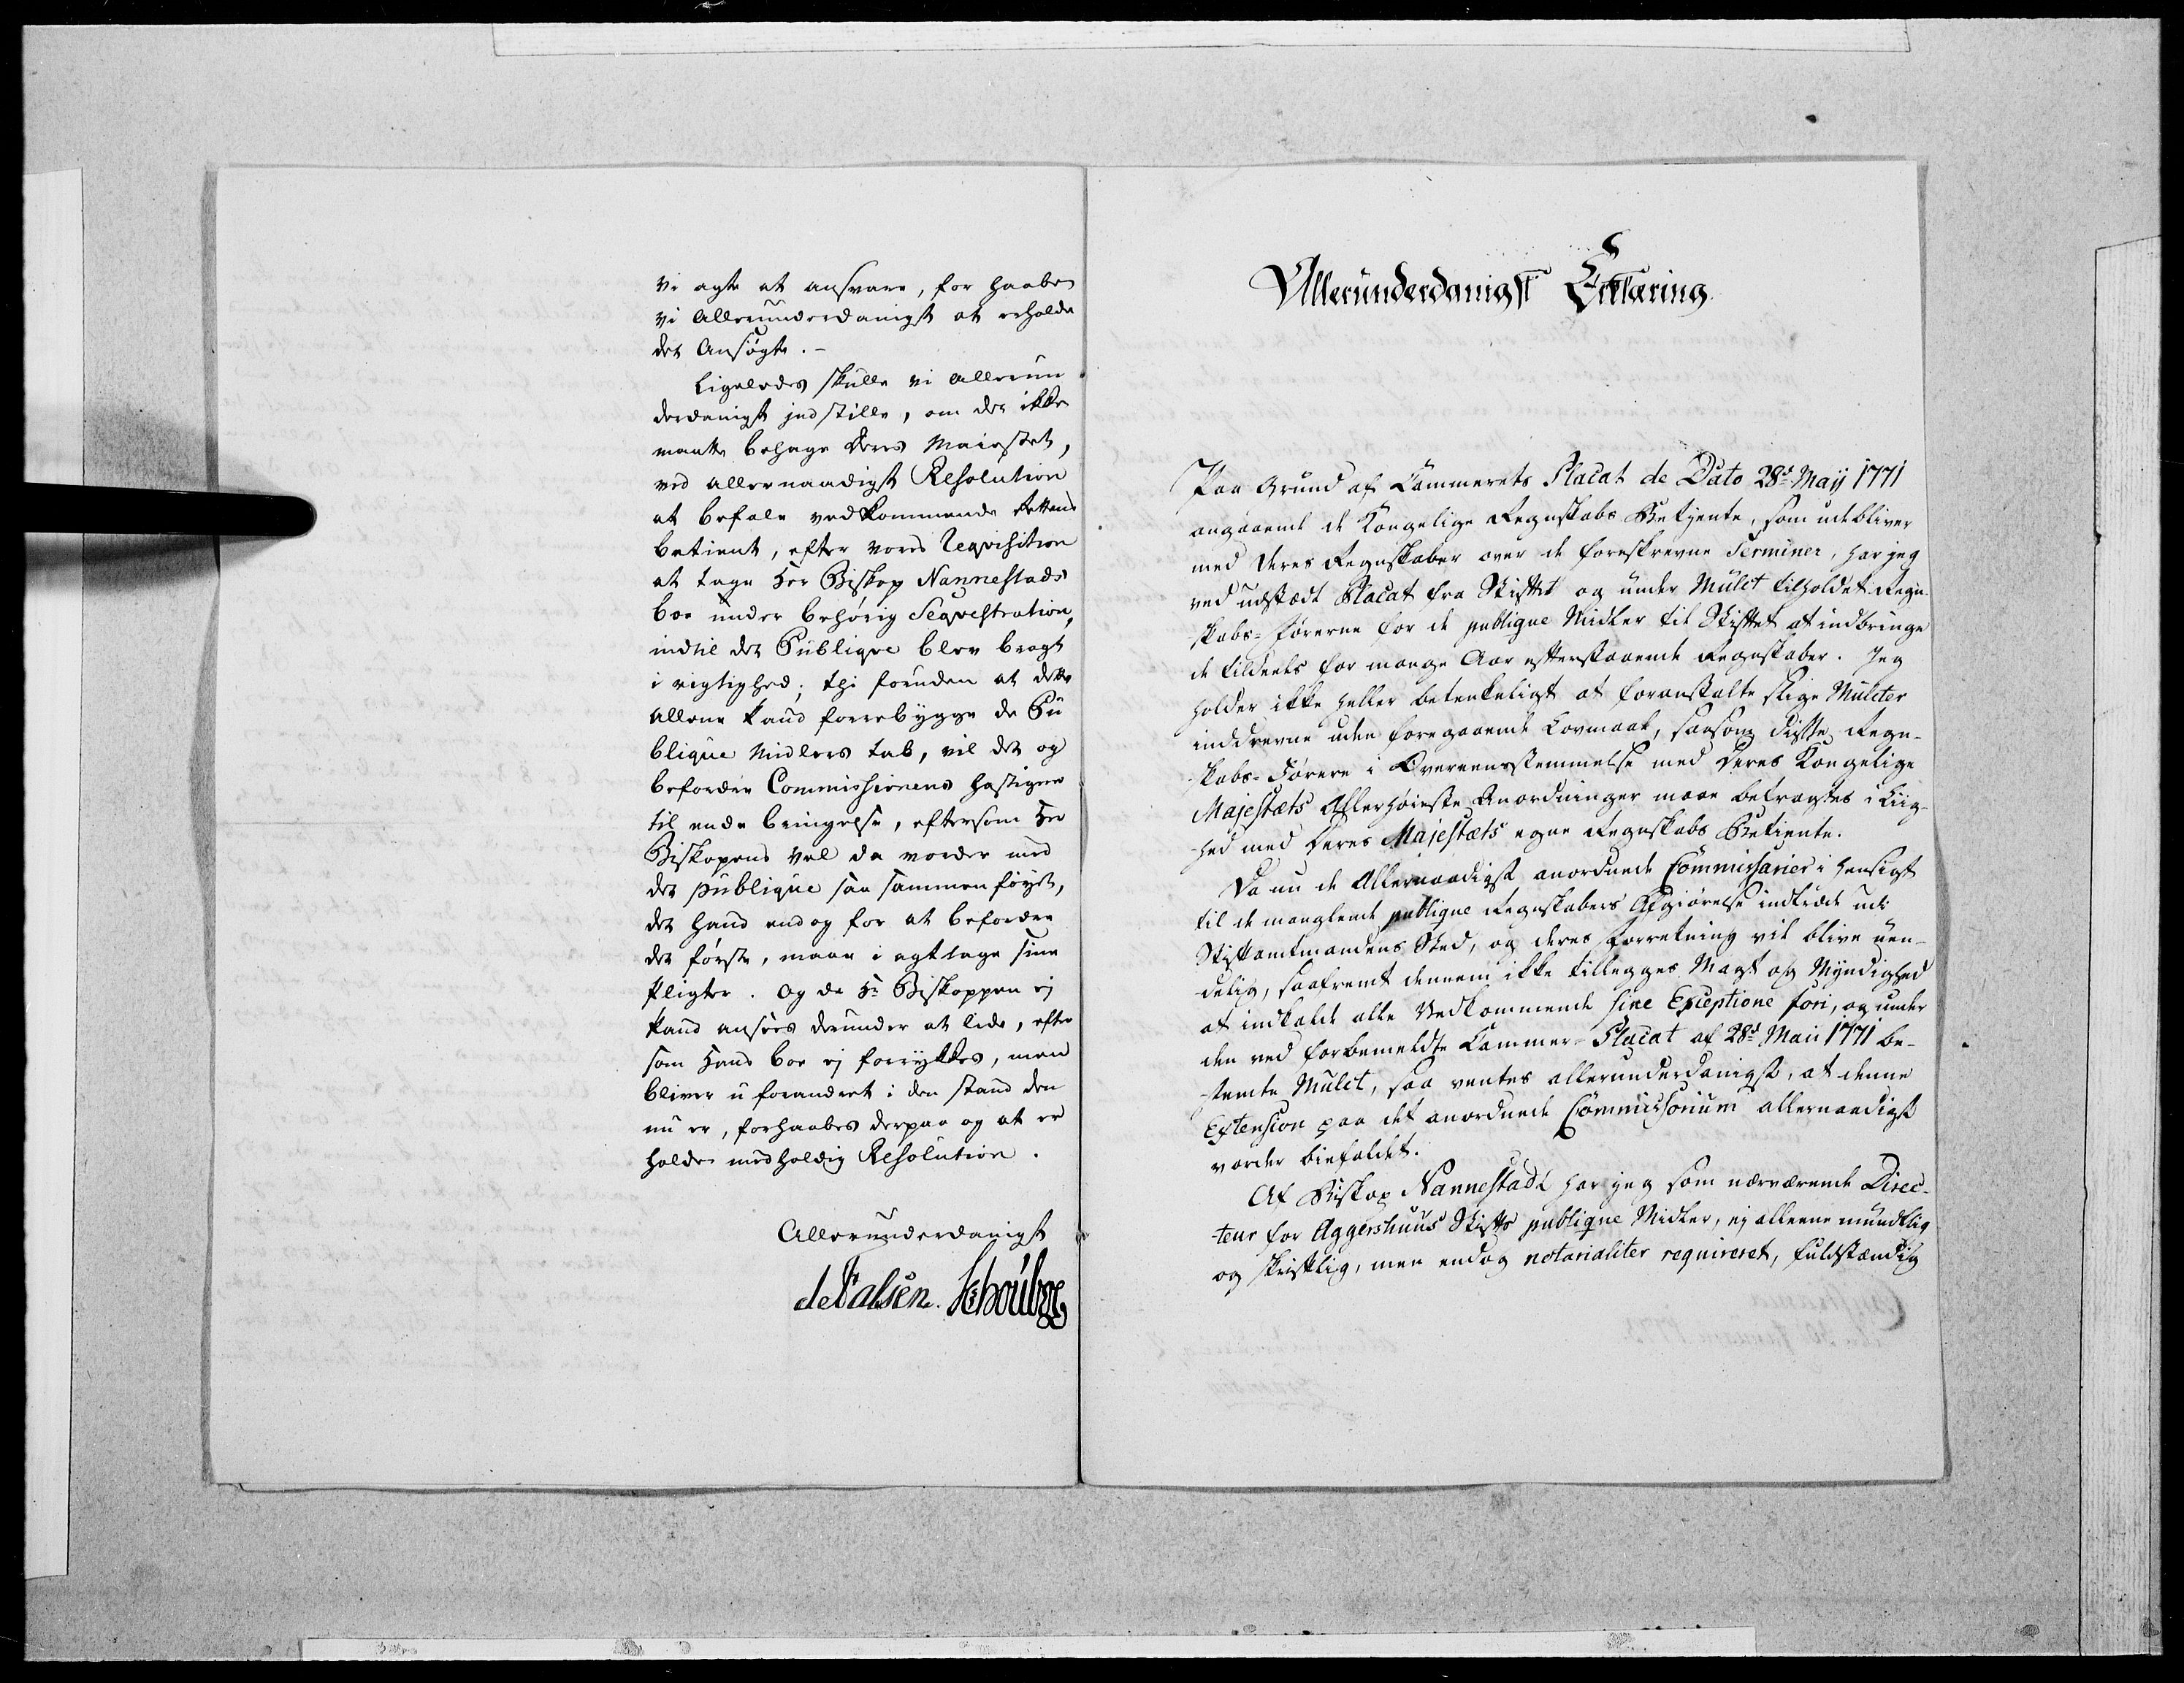 vi agte at ansvare, for haabe
vi Allerunderdanigst at erholde
det Ansøgte. -
Ligeledes skulle vi allerun
derdanigst jndstille, om det ikke
maatte behage Deres Maiestet,
ved allernaadigst Resolution
at befale vedkommende Rettens
betient, efter vores Reqvisition
at tage Her Biskop Nannestads
boe under behørig Seqvestration,
indtil det Publiqve blev bragt
i rigtighed; thi foruden at dette
allene kand forrebygge de Pu
blique Midlers tab, vil det og
befordre Commissionens hastigere
til ende bringelse, eftersom Her
Biskopens Vel da vorder med
det publique saa sammen føyet,
det hand endog for at befordre
det første, maae i agttage sine
Pligter. Og da Hr Biskoppen ej
kand ansees derunder at lide, efter
som Hans boe ej forrykkes, men
bliver u forandret i den stand den
nu er, forhaabes derpaa og at er
holde medholdig Resolution.
Allerunderdanigst
de Falsen. Schoubye
Allerunderdanigst Erklæring
Paa Grund af Cammerets Placat de Dato 28d May 1771
angaaende de Kongelige Regnskabs Betjente, som udebliver
med deres Regnskaber over de foreskrevne Terminer, har jeg
ved udstædt Placat fra Stiftet og under Mulct tilholdet Regn-
skabs-førerne for de publique Midler til Stiftet at indbringe
de tildeels for mange Aar efterstaaende Regnskaber. Jeg
holder ikke heller betenkeligt at foranstalte slige Mulcter
inddrevne uden foregaaende Lovmaal, saasom disse Regn-
skabs-Førere i Overeensstemmelse med Deres Kongelige
Majestæts Allerhøieste Anordninger maae betragtes i Liig-
hed med Deres Majestæts egne Regnskabs Betiente.
Da nu de Allernaadigst anordnede Commissarier i henseigt
til de manglende publique Regnskabers Afgiørelse indtræde udi
Stiftamtmandens Sted, og deres Forretning vil blive uen-
delig, saafremt dennem ikke tillegges Magt og Myndighed
at indkalde alle Vedkommende sine Exceptione fori, og under
den ved forbemeldte Cammer-Placat af 28d Maii 1771 be-
stemte Mulct, saa ventes allerunderdanigst, at denne
Extension paa det anordnede Commissorium allernaadigst
vorder biefaldet.
Af Biskop Nannestad har jeg som nærværende Direc-
teur for Aggershuus Stifts publique Midler, ej alleene mundtlig
og skriftlig, men endog notarialiter requireret, fuldstændig